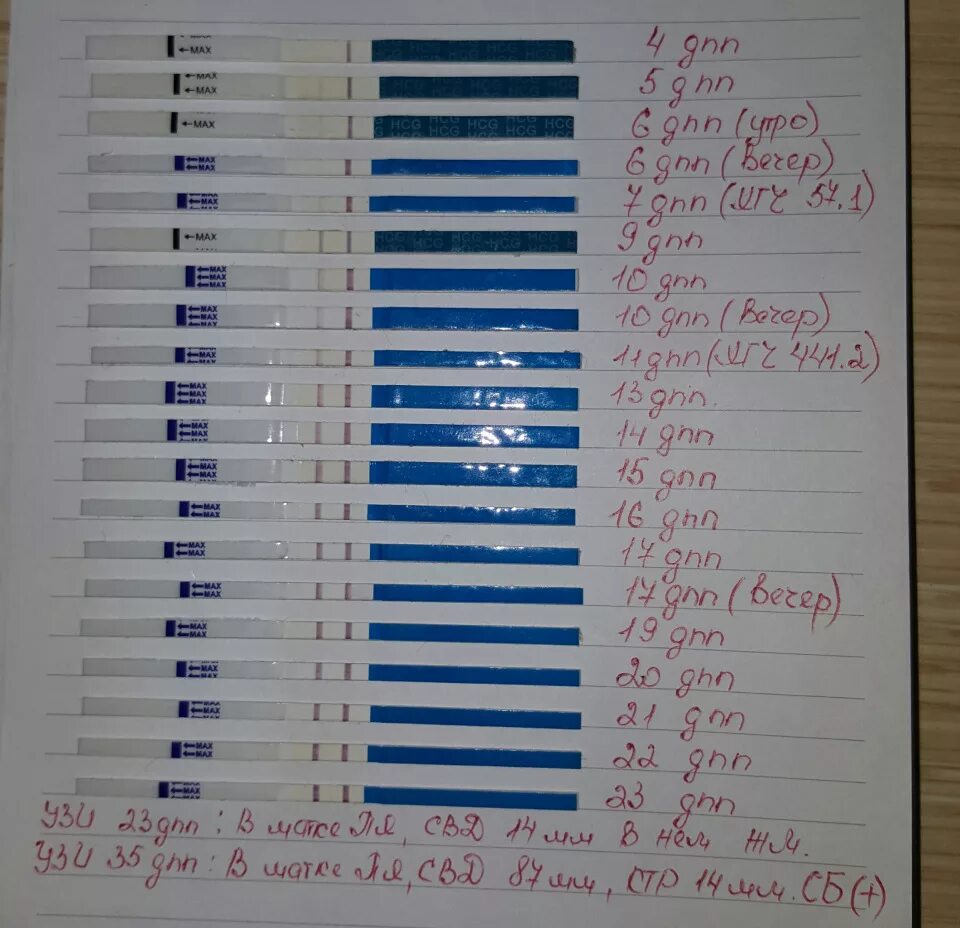 ←MAX HCG HCG HCG 4 дпп
←MAX HCG HCG HCG 5 дпп
←MAX HCG HCG HCG 6 дпп (утро)
←MAX ←MAX 6 дпп (Вечер)
←MAX ←MAX 7 дпп (ХГЧ 57.1)
←MAX HCG HCG HCG 9 дпп
←MAX ←MAX ←MAX 10 дпп
←MAX ←MAX ←MAX 10 дпп (Вечер)
←MAX ←MAX 11 дпп (ХГЧ 441.2)
←MAX ←MAX ←MAX 13 дпп.
←MAX ←MAX ←MAX 14 дпп
←MAX ←MAX ←MAX 15 дпп
←MAX ←MAX 16 дпп
←MAX ←MAX 17 дпп
←MAX ←MAX 17 дпп (Вечер)
←MAX ←MAX 19 дпп
←MAX ←MAX 20 дпп
←MAX ←MAX 21 дпп
←MAX ←MAX 22 дпп
←MAX ←MAX 23 дпп
УЗИ 23 дпп: В матке ПЯ, СВД 14 мм В нём ЖМ.
УЗИ 35 дпп: В матке ПЯ, СВД 87 мм, СТР 14 мм. СБ (+)